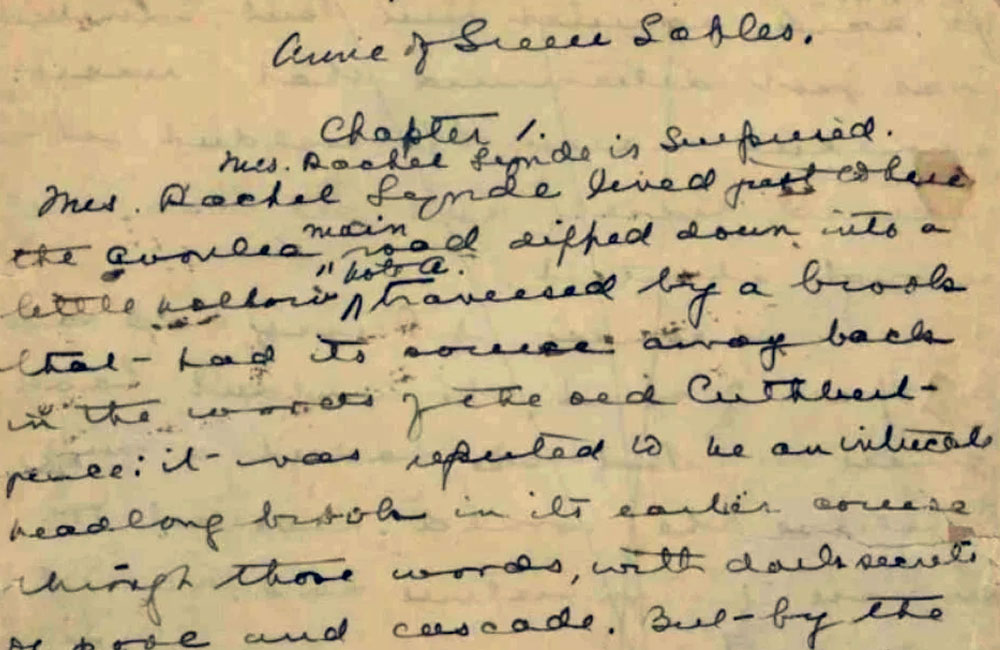 Anne of Green Gables.
Chapter 1.
Mrs. Rachel Lynde is Surprised.
Mrs. Rachel Lynde lived just where
main
the Avonlea road dipped down into a
" Note A.
little hollow traversed by a brook
that had its source away back
in the woods of the old Cuthbert
place: it was reputed to be an intricate
headlong brook in its earlier course
through those woods, with dark secrets
of pool and cascade. But by the